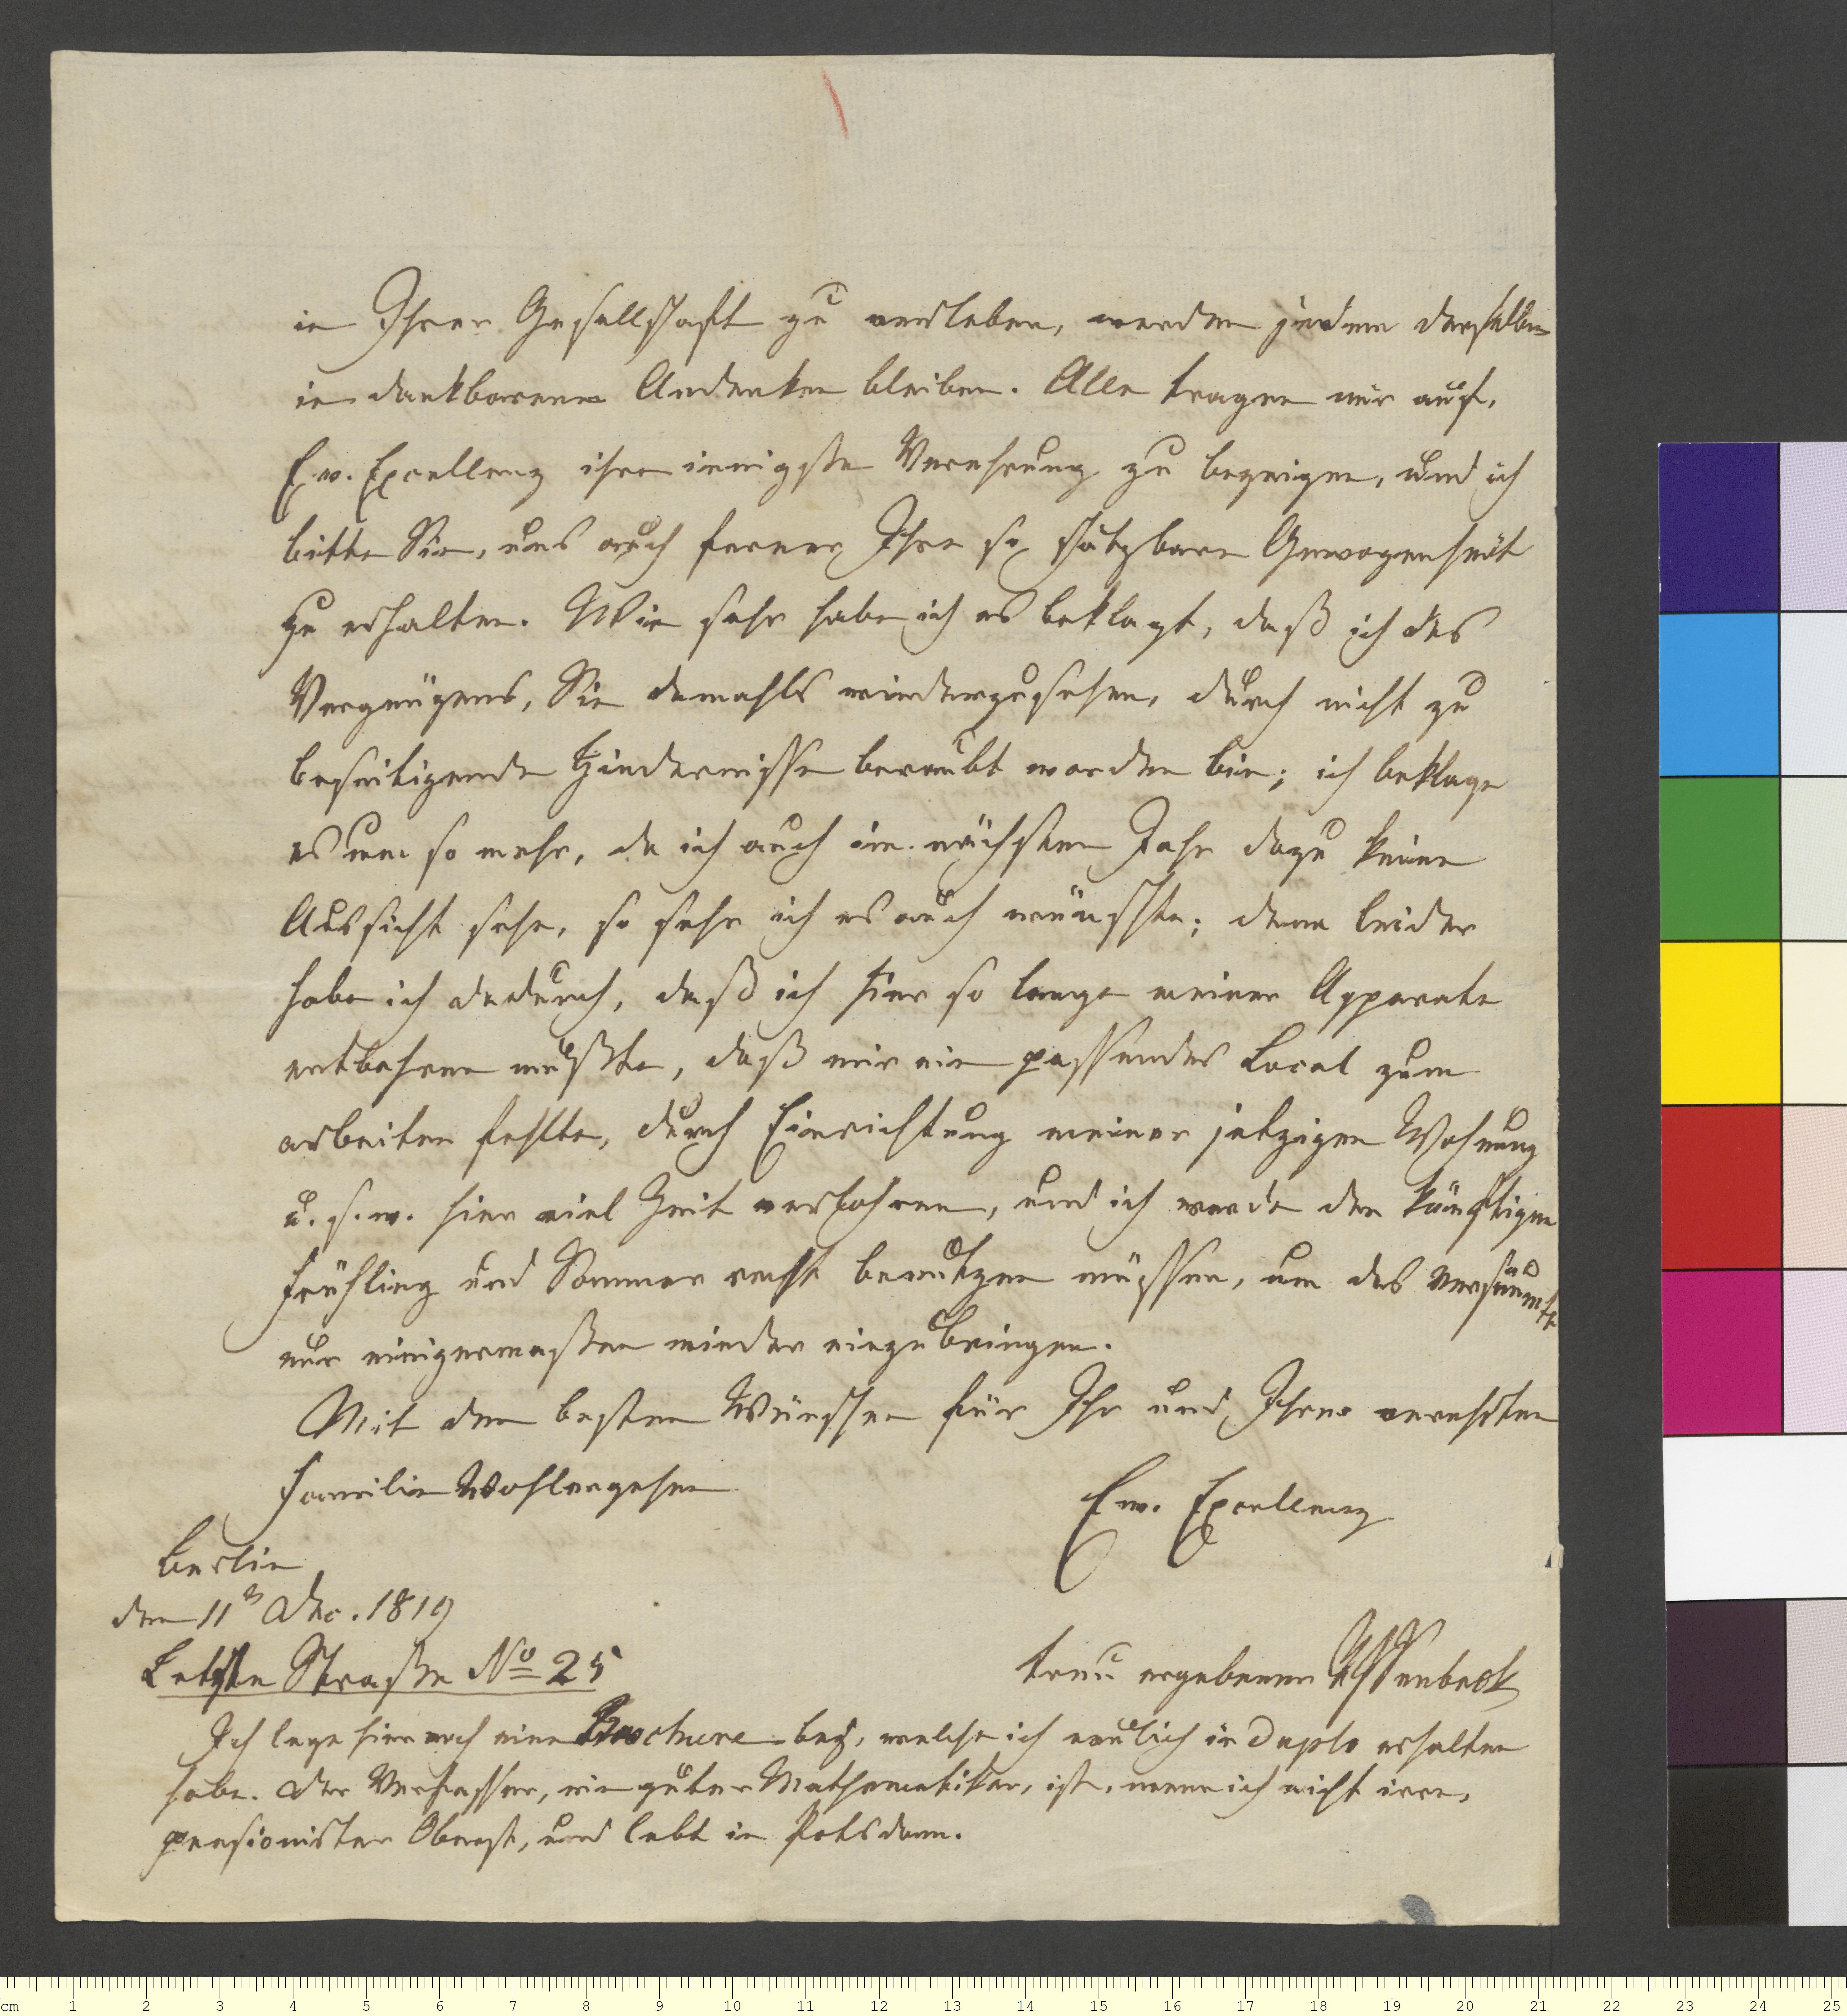 in Ihrer Gesellschaft zu verleben, werden jedem derselben
in dankbarem Andenken bleiben. Alle tragen mir auf,
Ew. Excellenz ihre innigste Verehrung zu bezeigen, und ich
bitte Sie, uns auch ferner Ihre so schätzbare Gewogenheit
zu erhalten. Wie sehr habe ich es beklagt, daß ich des
Vergnügens, Sie damahls wiederzusehen, durch nicht zu
beseitigende Hindernisse beraubt worden bin; ich beklage
es um so mehr, da ich auch im nächsten Jahr dazu keine
Aussicht sehe, so sehr ich es auch wünschte; denn leider
habe ich dadurch, daß ich hier so lange meiner Apparate
entbehren mußte, daß mir ein passendes Local zum
arbeiten fehlte, durch Einrichtung meiner jetzigen Wohnung
u. s. w. hier viel Zeit verlohren, und ich werde den künftigen
Frühling und Sommer recht benutzen müssen, um das Versäumte
nur einigermaßen wieder einzubringen.
Mit den besten Wünschen für Ihr und Ihrer verehrten
Familie Wohlergehen
Ew. Excellenz
Berlin
den 11n Dec. 1819
Letzte Straße No 25
treu ergebener
Ich lege hier noch eine Brochure bey, welche ich neulich in Duplo erhalten
habe. Der Verfasser, ein guter Mathematiker, ist, wenn ich nicht irre,
pensionirter Oberst, und lebt in Potsdam.
cm 1 2 3 4 5 6 7 8 9 10 11 12 13 14 15 16 17 18 19 20 21 22 23 24 25